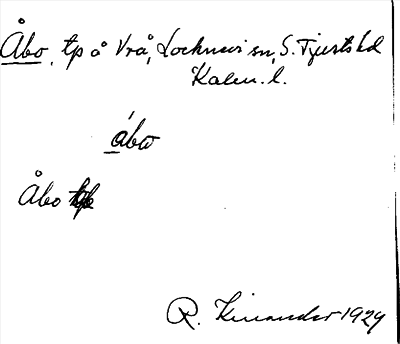 Åbo, tp å Vrå, Locknevi sn, S. Tjusts hd
Kalm. l.
ábω
Åbo
R. Kinander 1929